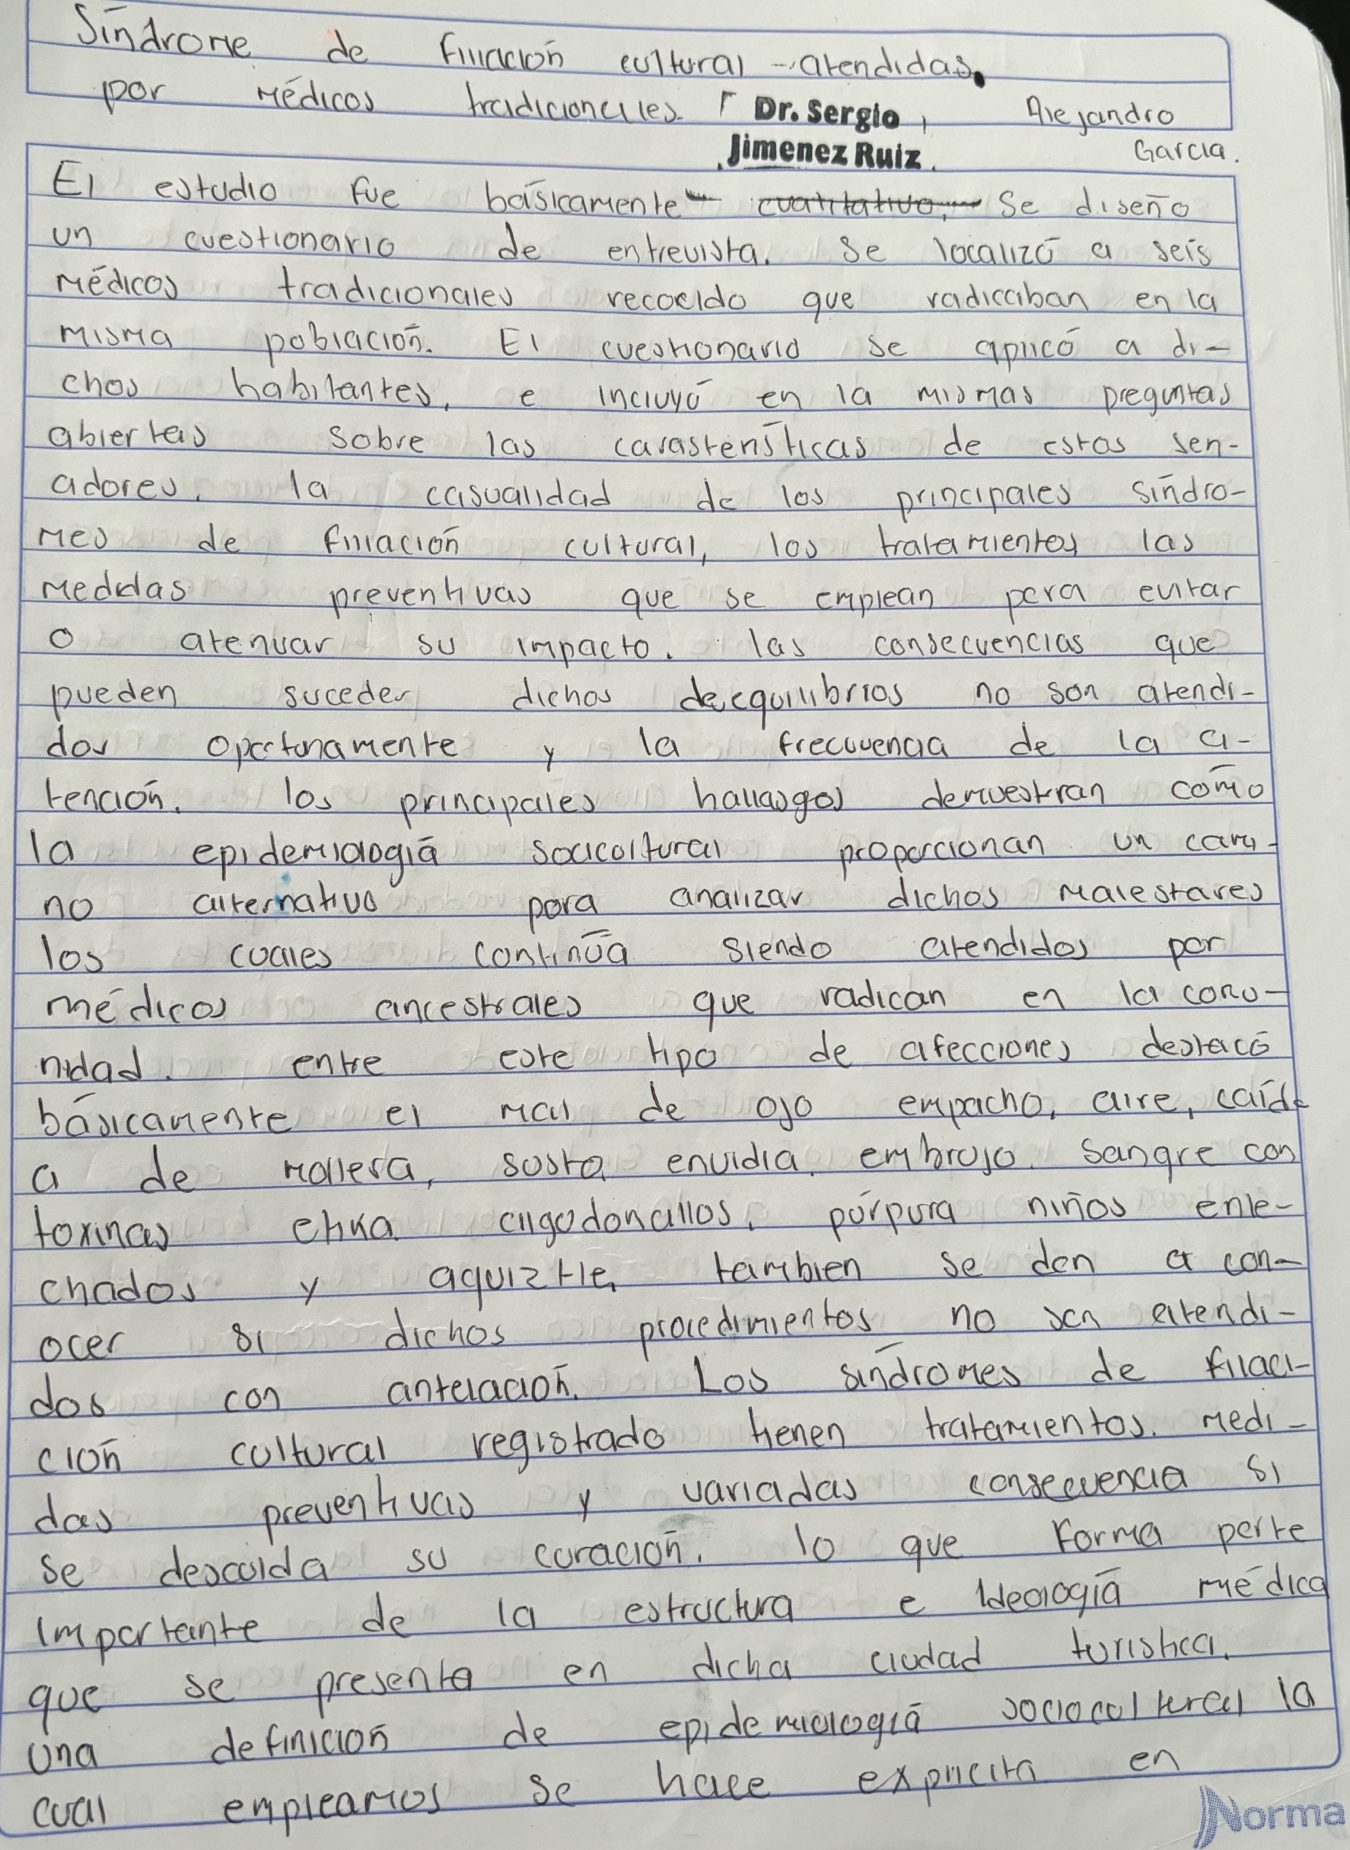 Síndrome de filiación cultural - atendidas
por médicos tradicionales. Dr. Sergio Alejandro
Jimenez Ruiz. García.
El estudio fue básicamente cuatitativo, Se diseño
un cuestionario de entrevista. Se localizó a seis
médicos tradicionales recoeldo que radicaban en la
misma población. El cuestionario se aplicó a di-
chos habitantes, e incluyó en la mismas preguntas
abiertas sobre las carasterísticas de estos sen-
adores. la casualidad de los principales síndro-
mes de filiación cultural, los tratamientos las
medidas preventivas que se emplean para evitar
o atenuar su impacto. las consecuencias que
pueden suceder dichos deequilibrios no son atendi-
dos oportunamente y la frecuencia de la a-
tención. los principales hallasgos demuestran cómo
la epidemiología sociocultural proporcionan un cami-
no alternativo para analizar dichos malestares
los cuales continúa siendo atendidos por
médicos ancestrales que radican en la comu-
nidad. entre este tipo de afecciones destacó
básicamente el mal de ojo empacho, aire, caíd
a de mollera, susto envidia. embrujo. Sangre con
toxinas etika algodoncillos, púrpura niños enle-
chados y aquiztle, tambien se dan a con-
ocer si dichos procedimientos no son atendi-
dos con antelación. Los síndromes de filiaci-
ción cultural registrado tienen tratamientos. medi-
das preventivas y variadas consecuencia si
se descuida su curación. lo que forma parte
importante de la estructura e ideología médica
que se presenta en dicha ciudad turística.
una definición de epidemiología sociocultural la
cual empleamos se hace explicita en
Norma